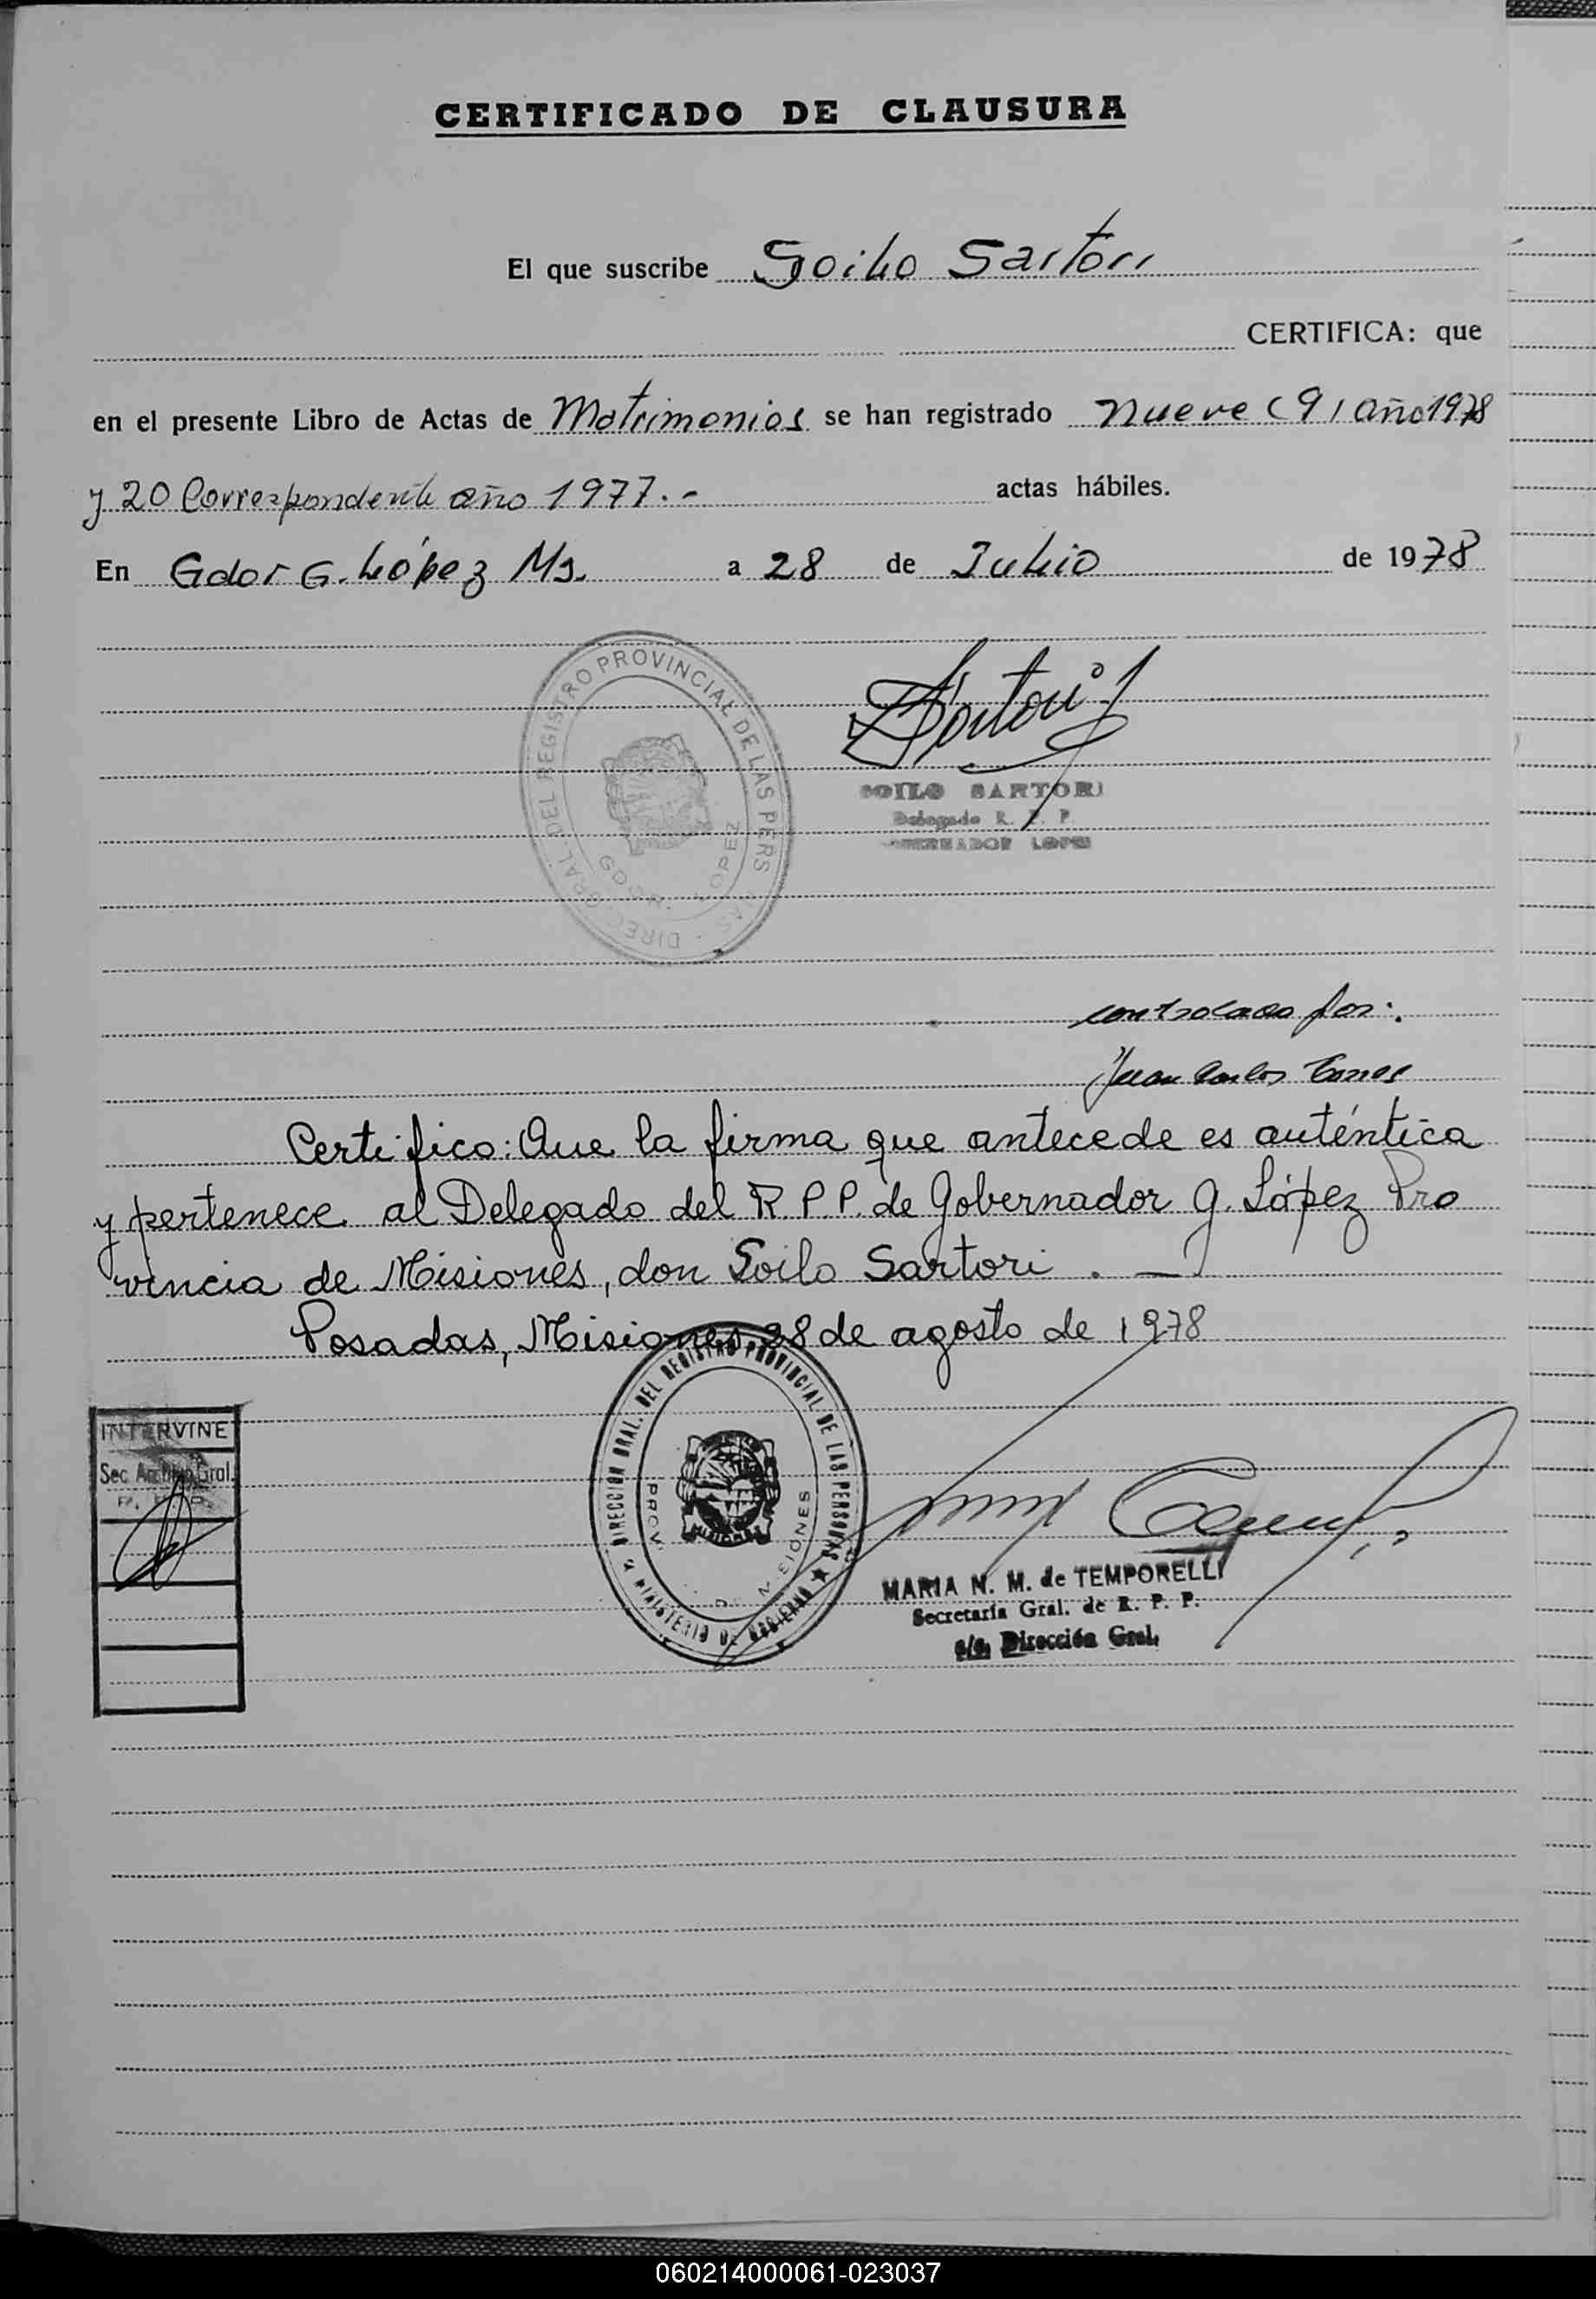 CERTIFICADO DE CLAUSURA
El que suscribe Soilo Sartori
CERTIFICA: que
en el presente Libro de Actas de Matrimonios se han registrado nueve (9) año 1978
y 20 Correspondente año 1977.- actas hábiles.
En Gdor G. López Ms. a 28 de Julio de 1978
DIREC. GRAL. DEL REGISTRO PROVINCIAL DE LAS PERSONAS
GDOR. LOPEZ
Sartori
SOILO SARTORI
Delegado R. P. P.
GOBERNADOR LOPEZ
controlado por:
Juan Carlos
Certifico: Que la firma que antecede es auténtica
y pertenece al Delegado del R.P.P. de Gobernador G. López Pro
vincia de Misiones, don Soilo Sartori. —
Posadas, Misiones, 28 de agosto de 1978
DIRECCIÓN GRAL. DEL REGISTRO PROVINCIAL DE LAS PERSONAS
MINISTERIO DE GOBIERNO
PROV. DE MISIONES
MISIONES
INTERVINE
Sec. Archivo Gral.
MARIA N. M. de TEMPORELLI
Secretaría Gral. de R. P. P.
a/c. Dirección Gral.
060214000061-023037